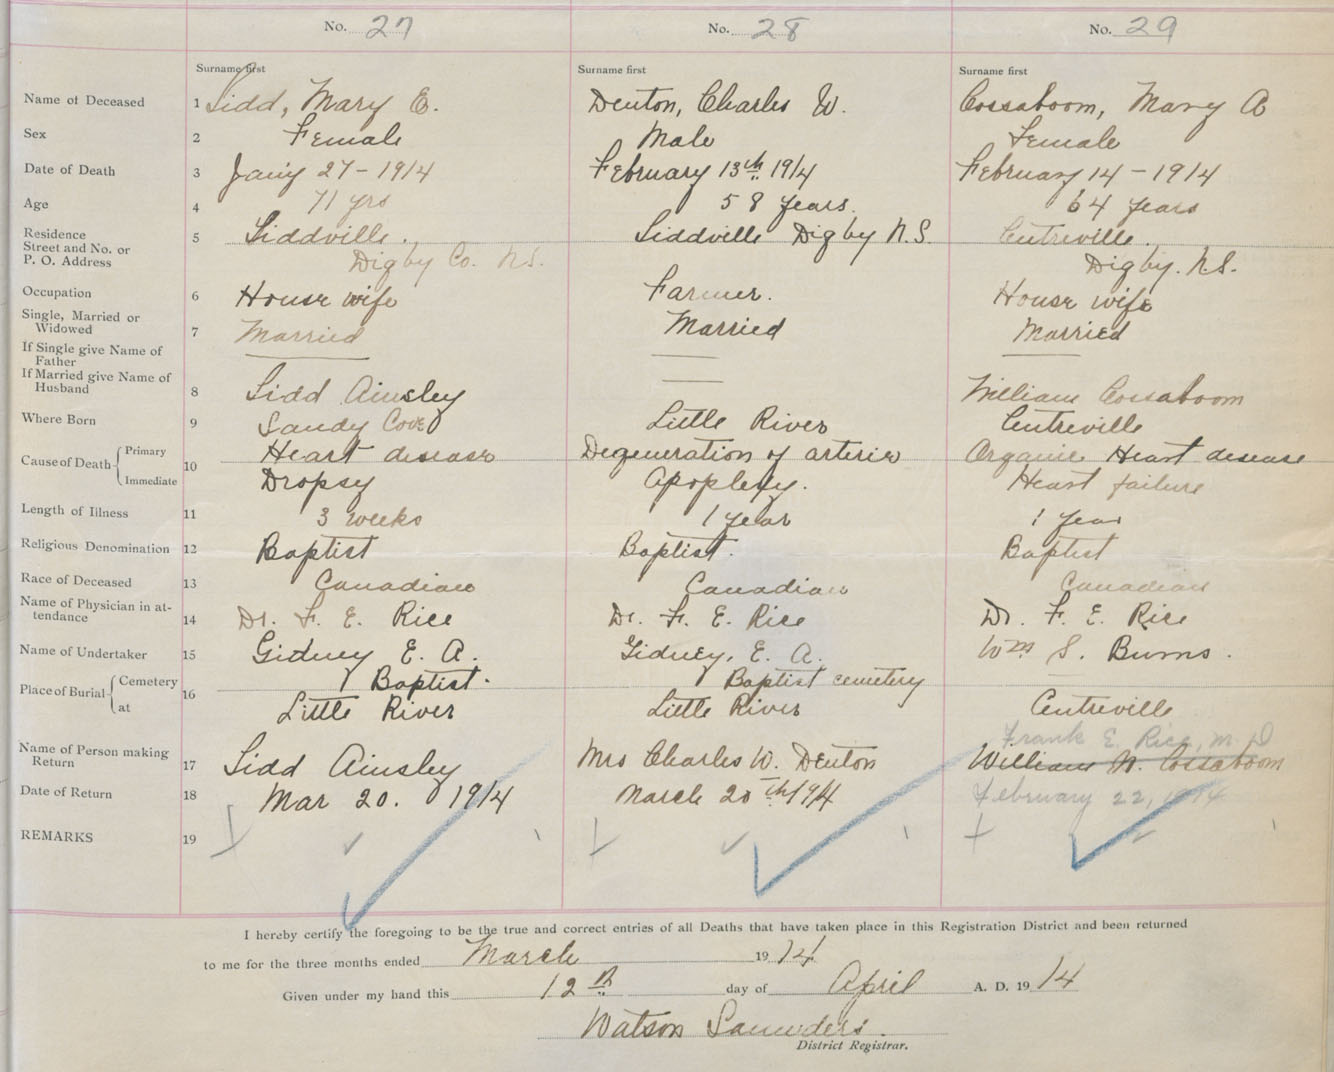 No. 27 No. 28 No. 29
Surname first Surname first Surname first
Name of Deceased 1 Sidd, Mary E. Denton, Charles W. Cossaboom, Mary A
Sex 2 Female Male Female
Date of Death 3 Jany 27 - 1914 February 13th 1914 February 14 - 1914
Age 4 71 yrs 58 years. 64 years
Residence 5 Siddville. Siddville Digby N.S. Centreville.
Street and No. or
P. O. Address Digby Co. N.S. Digby. N.S.
Occupation 6 House wife Farmer. House wife
Single, Married or
Widowed 7 Married Married Married
If Single give Name of
Father
If Married give Name of
Husband 8 Sidd Ainsley William Cossaboom
Where Born 9 Sandy Cove Little River Centreville
Cause of Death Primary 10 Heart disease Degeneration of arteries Organic Heart desease
Immediate Dropsy Apoplexy. Heart failure
Length of Illness 11 3 weeks 1 year 1 year
Religious Denomination 12 Baptist Baptist. Baptist
Race of Deceased 13 Canadian Canadian Canadian
Name of Physician in at-
tendance 14 Dr. F. E. Rice Dr. F. E. Rice Dr. F. E. Rice
Name of Undertaker 15 Gidney E. A. Gidney, E. A. Wm S. Burns.
Place of Burial Cemetery 16 Baptist. Baptist cemetery
at Little River Little River Centreville
Frank E. Rice, M.D
Name of Person making
Return 17 Sidd Ainsley Mrs Charles W. Denton William W. Cossaboom
Date of Return 18 Mar 20. 1914 March 20th 1914 February 22, 1914
REMARKS 19
I hereby certify the foregoing to be the true and correct entries of all Deaths that have taken place in this Registration District and been returned
to me for the three months ended March 1914
Given under my hand this 12th day of April A. D. 1914
Watson Saunders.
District Registrar.